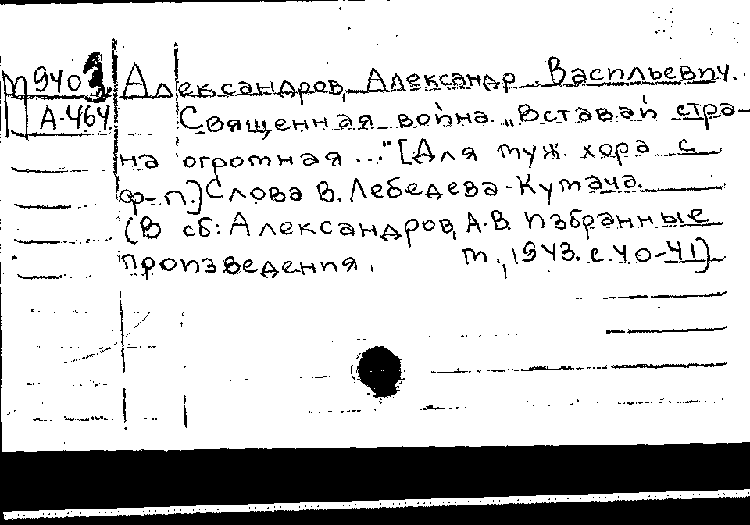 М 9403 Александров, Александр Васильевич.
А-464 Священная война. „Вставай стра-
на огромная..." [Для муж. хора с
ф-п.] Слова В. Лебедева-Кумача.
(В сб: Александров, А.В. Избранные
произведения. М., 1943. с. 40-41)